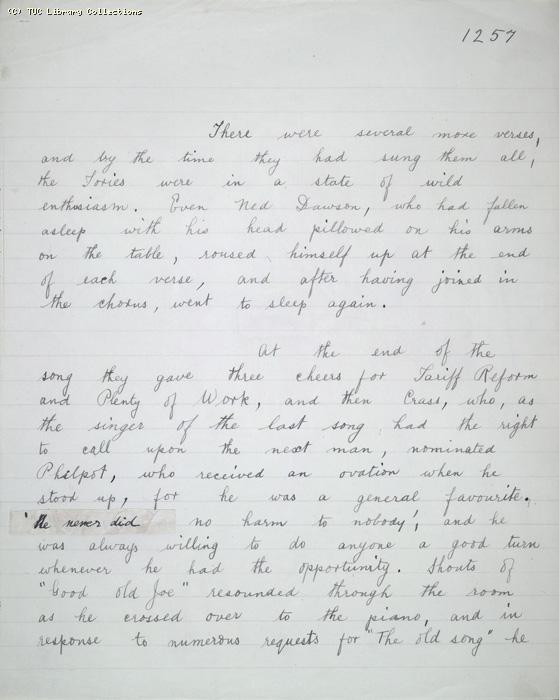 (C) TUC Library Collections
1257
There were several more verses,
and by the time they had sung them all,
the Tories were in a state of wild
enthusiasm. Even Ned Dawson, who had fallen
asleep with his head pillowed on his arms
on the table, roused himself up at the end
of each verse, and after having joined in
the chorus, went to sleep again.
At the end of the
song they gave three cheers for Tariff Reform
and Plenty of Work, and then Crass, who, as
the singer of the last song had the right
to call upon the next man, nominated
Philpot, who received an ovation when he
stood up, for he was a general favourite.
'He never did no harm to nobody', and he
was always willing to do anyone a good turn
whenever he had the opportunity. Shouts of
"Good old Joe" resounded through the room
as he crossed over to the piano, and in
response to numerous requests for "The old song" he